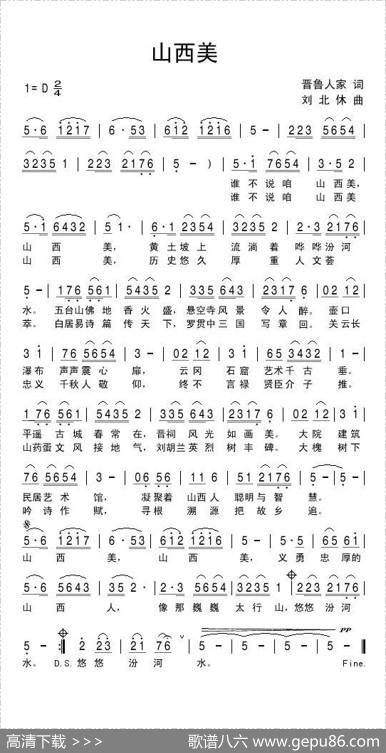 山西美
1=D 2/4
晋鲁人家 词
刘北休 曲
5·6 1217 | 6·53 | 612 1216 | 5 - | 223 5654 |
3235 1 | 223 2176 | 5 - ) | 5·1 7654 | 3·5 2 |
谁不说咱 山西美,
谁不说咱 山西美
5·1 6432 | 5 1· | 6·1 2354 | 3235 2 | 2·3 2176 |
山西美, 黄土坡上 流淌着 哗哗汾河
山西美, 历史悠久 厚重人文荟
5 - | 176 561 | 5435 2 | 643 2317 | 6·561 | 02 12 |
水。 五台山佛地 香火盛, 悬空寺风景 令人醉。 壶口
萃。 白居易诗篇 传天下, 罗贯中三国 写章回。 关云长
3 1 | 76 5654 | 3 - | 02 12 | 3 1 | 65 3432 | 1 - |
瀑布 声声震心扉, 云冈石窟 艺术千古垂。
忠义 千秋人敬仰, 终不言禄 贤臣介子推。
176 561 | 5435 2 | 643 2317 | 6·561 | 02 12 | 3 1 |
平遥古城 春常在, 晋祠风光 如画美。 大院建筑
山药蛋文风 接地气, 刘胡兰英烈 树丰碑。 大槐树下
76 5654 | 3 - | 06 56 | 1 1 6 | 5435 2 | 5 - | 5 - |
民居艺术馆, 凝聚着 山西人 聪明与智慧。
吟诗作赋, 寻根溯源 把故乡追。
山西美, 山西美, 义勇忠厚的
山西人, 像那巍巍 太行山,悠悠汾河
5 - :| 2 23 | 21 76 | 5 - | 5 - |
水。 D.S. 悠悠汾河 水。 Fine.
高清下载 >>>
歌谱八六 www.gepu86.com